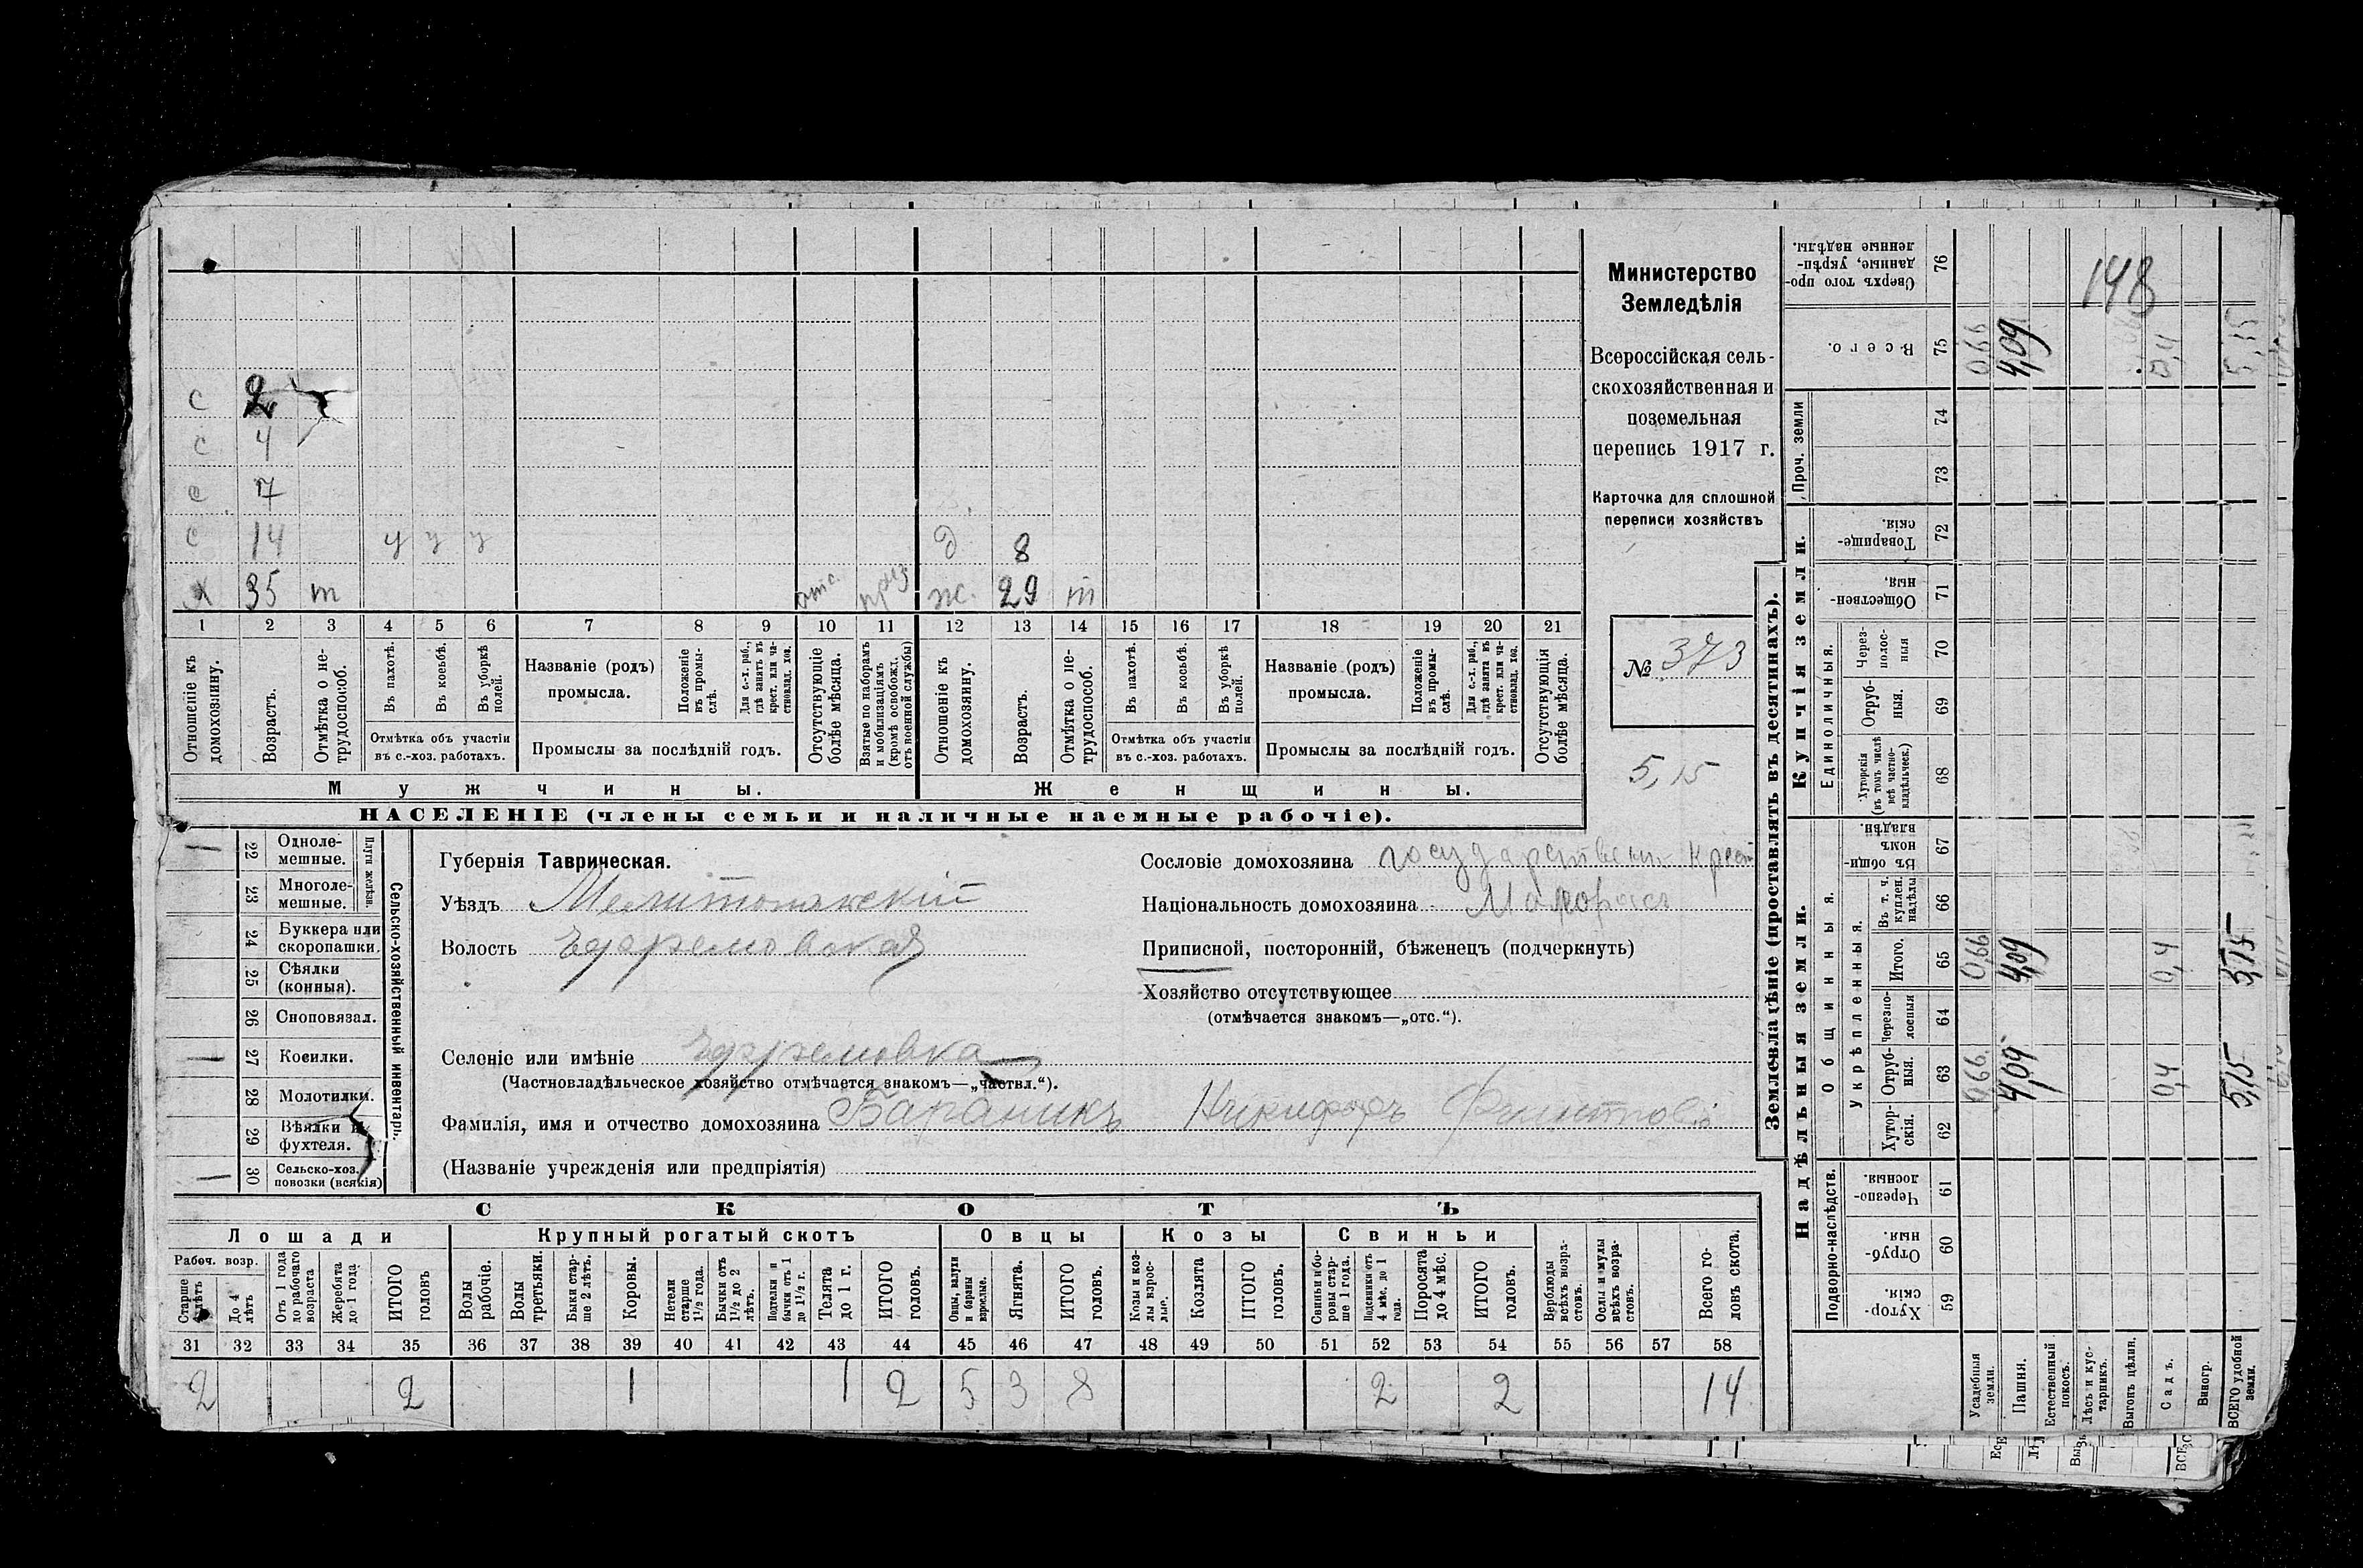 Министерство
Земледѣлія
Всероссійская сель-
скохозяйственная и
поземельная
перепись 1917 г.
Карточка для сплошной
переписи хозяйствъ
№ 373
5,15
148
с 2
с 4
с 7
с 14 у у у д 8
х 35 т отс. приз. ж. 29 т
1 2 3 4 5 6 7 8 9 10 11 12 13 14 15 16 17 18 19 20 21
Отношеніе къ домохозяину.
Возрастъ.
Отмѣтка о не-трудоспособ.
Въ пахотѣ.
Въ косьбѣ.
Въ уборкѣ полей.
Отмѣтка объ участіи въ с.-хоз. работахъ.
Названіе (родъ) промысла.
Положеніе въ промы-слѣ.
Для с.-х. раб., гдѣ занятъ въ крест. или ча-стновлад. хоз.
Промыслы за послѣдній годъ.
Отсутствующіе болѣе мѣсяца.
Взятые по наборамъ и мобилизаціямъ (кромѣ освобожд. отъ военной службы)
Отношеніе къ домохозяину.
Возрастъ.
Отмѣтка о не-трудоспособ.
Въ пахотѣ.
Въ косьбѣ.
Въ уборкѣ полей.
Отмѣтка объ участіи въ с.-хоз. работахъ.
Названіе (родъ) промысла.
Положеніе въ промы-слѣ.
Для с.-х. раб., гдѣ занята въ крест. или ча-стновлад. хоз.
Промыслы за послѣдній годъ.
Отсутствующія болѣе мѣсяца.
Мужчины. Женщины.
НАСЕЛЕНІЕ (члены семьи и наличные наемные рабочіе).
22 Одноле-мешные.
23 Многоле-мешные.
Плуги желѣзн.
24 Буккера или скоропашки.
25 Сѣялки (конныя).
26 Сноповязал.
27 Косилки.
28 Молотилки.
29 Вѣялки и фухтеля.
30 Сельско-хоз. повозки (всякія)
Сельско-хозяйственный инвентарь.
Губернія Таврическая.
Уѣздъ Мелитопольскій
Волость Ефремовская
Селеніе или имѣніе Ефремовка
(Частновладѣльческое хозяйство отмѣчается знакомъ—„частвл.“).
Фамилія, имя и отчество домохозяина Бараникъ Никифоръ
(Названіе учрежденія или предпріятія)
Сословіе домохозяина государствен. крест
Національность домохозяина Малоросъ
Приписной, посторонній, бѣженецъ (подчеркнуть)
Хозяйство отсутствующее
(отмѣчается знакомъ—„отс.“).
СКОТЪ
Лошади Крупный рогатый скотъ Овцы Козы Свиньи
Рабоч. возр.
Старше 4 лѣтъ
До 4 лѣтъ
Отъ 1 года до рабочаго возраста
Жеребята до 1 года
ИТОГО головъ
Волы рабочіе.
Волы третьяки.
Быки стар-ше 2 лѣтъ.
Коровы.
Нетели старше 1½ года.
Бычки отъ 1½ до 2 лѣтъ.
Подтелки и бычки отъ 1 до 1½ г.
Телята до 1 г.
ИТОГО головъ.
Овцы, валухи и бараны взрослые.
Ягнята.
ИТОГО головъ.
Козы и коз-лы взрос-лые.
Козлята
ИТОГО головъ.
Свиньи и бо-ровы стар-ше 1 года.
Подсвинки отъ 4 мѣс. до 1 года.
Поросята до 4 мѣс.
ИТОГО головъ.
Верблюды всѣхъ возра-стовъ.
Ослы и мулы всѣхъ возра-стовъ.
Всего го-ловъ скота.
31 32 33 34 35 36 37 38 39 40 41 42 43 44 45 46 47 48 49 50 51 52 53 54 55 56 57 58
2 2 1 1 2 5 3 8 2 2 14
Землевладѣніе (проставлять въ десятинахъ).
Надѣльныя земли.
Купчія земли.
Проч. земли
Подворно-наслѣдств.
Общинныя.
Укрѣпленныя.
Единоличныя.
Хутор-скія. 59
Отруб-ныя. 60
Черезпо-лосныя. 61
Хутор-скія. 62
Отруб-ныя. 63
Черезпо-лосныя 64
Итого. 65
Въ т. ч. куплен. надѣлы 66
Въ общи-номъ владѣн. 67
Хуторскія (въ томъ числѣ всѣ частно-владѣльческ.) 68
Отруб-ныя. 69
Через-полос-ныя 70
Обществен-ныя. 71
Товарище-скія. 72
73
74
Всего. 75
Сверхъ того про-данные, укрѣп-ленные надѣлы. 76
Усадебныя земли. 0,66 0,66 0,66
Пашня. 4,09 4,09 4,09
Естественный покосъ.
Лѣсъ и кус-тарникъ.
Выгонъ цѣлин.
Садъ. 0,4 0,4 0,4
Виногр.
ВСЕГО удобной земли. 5,15 5,15 5,15